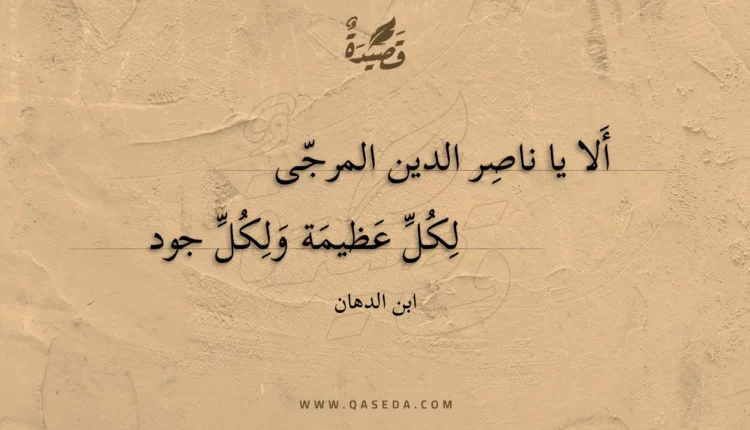 قَصِيْدَةٌ
أَلا يا ناصِر الدين المرجّى
لِكُلِّ عَظيمَة وَلِكُلِّ جود
ابن الدهان
WWW.QASEDA.COM